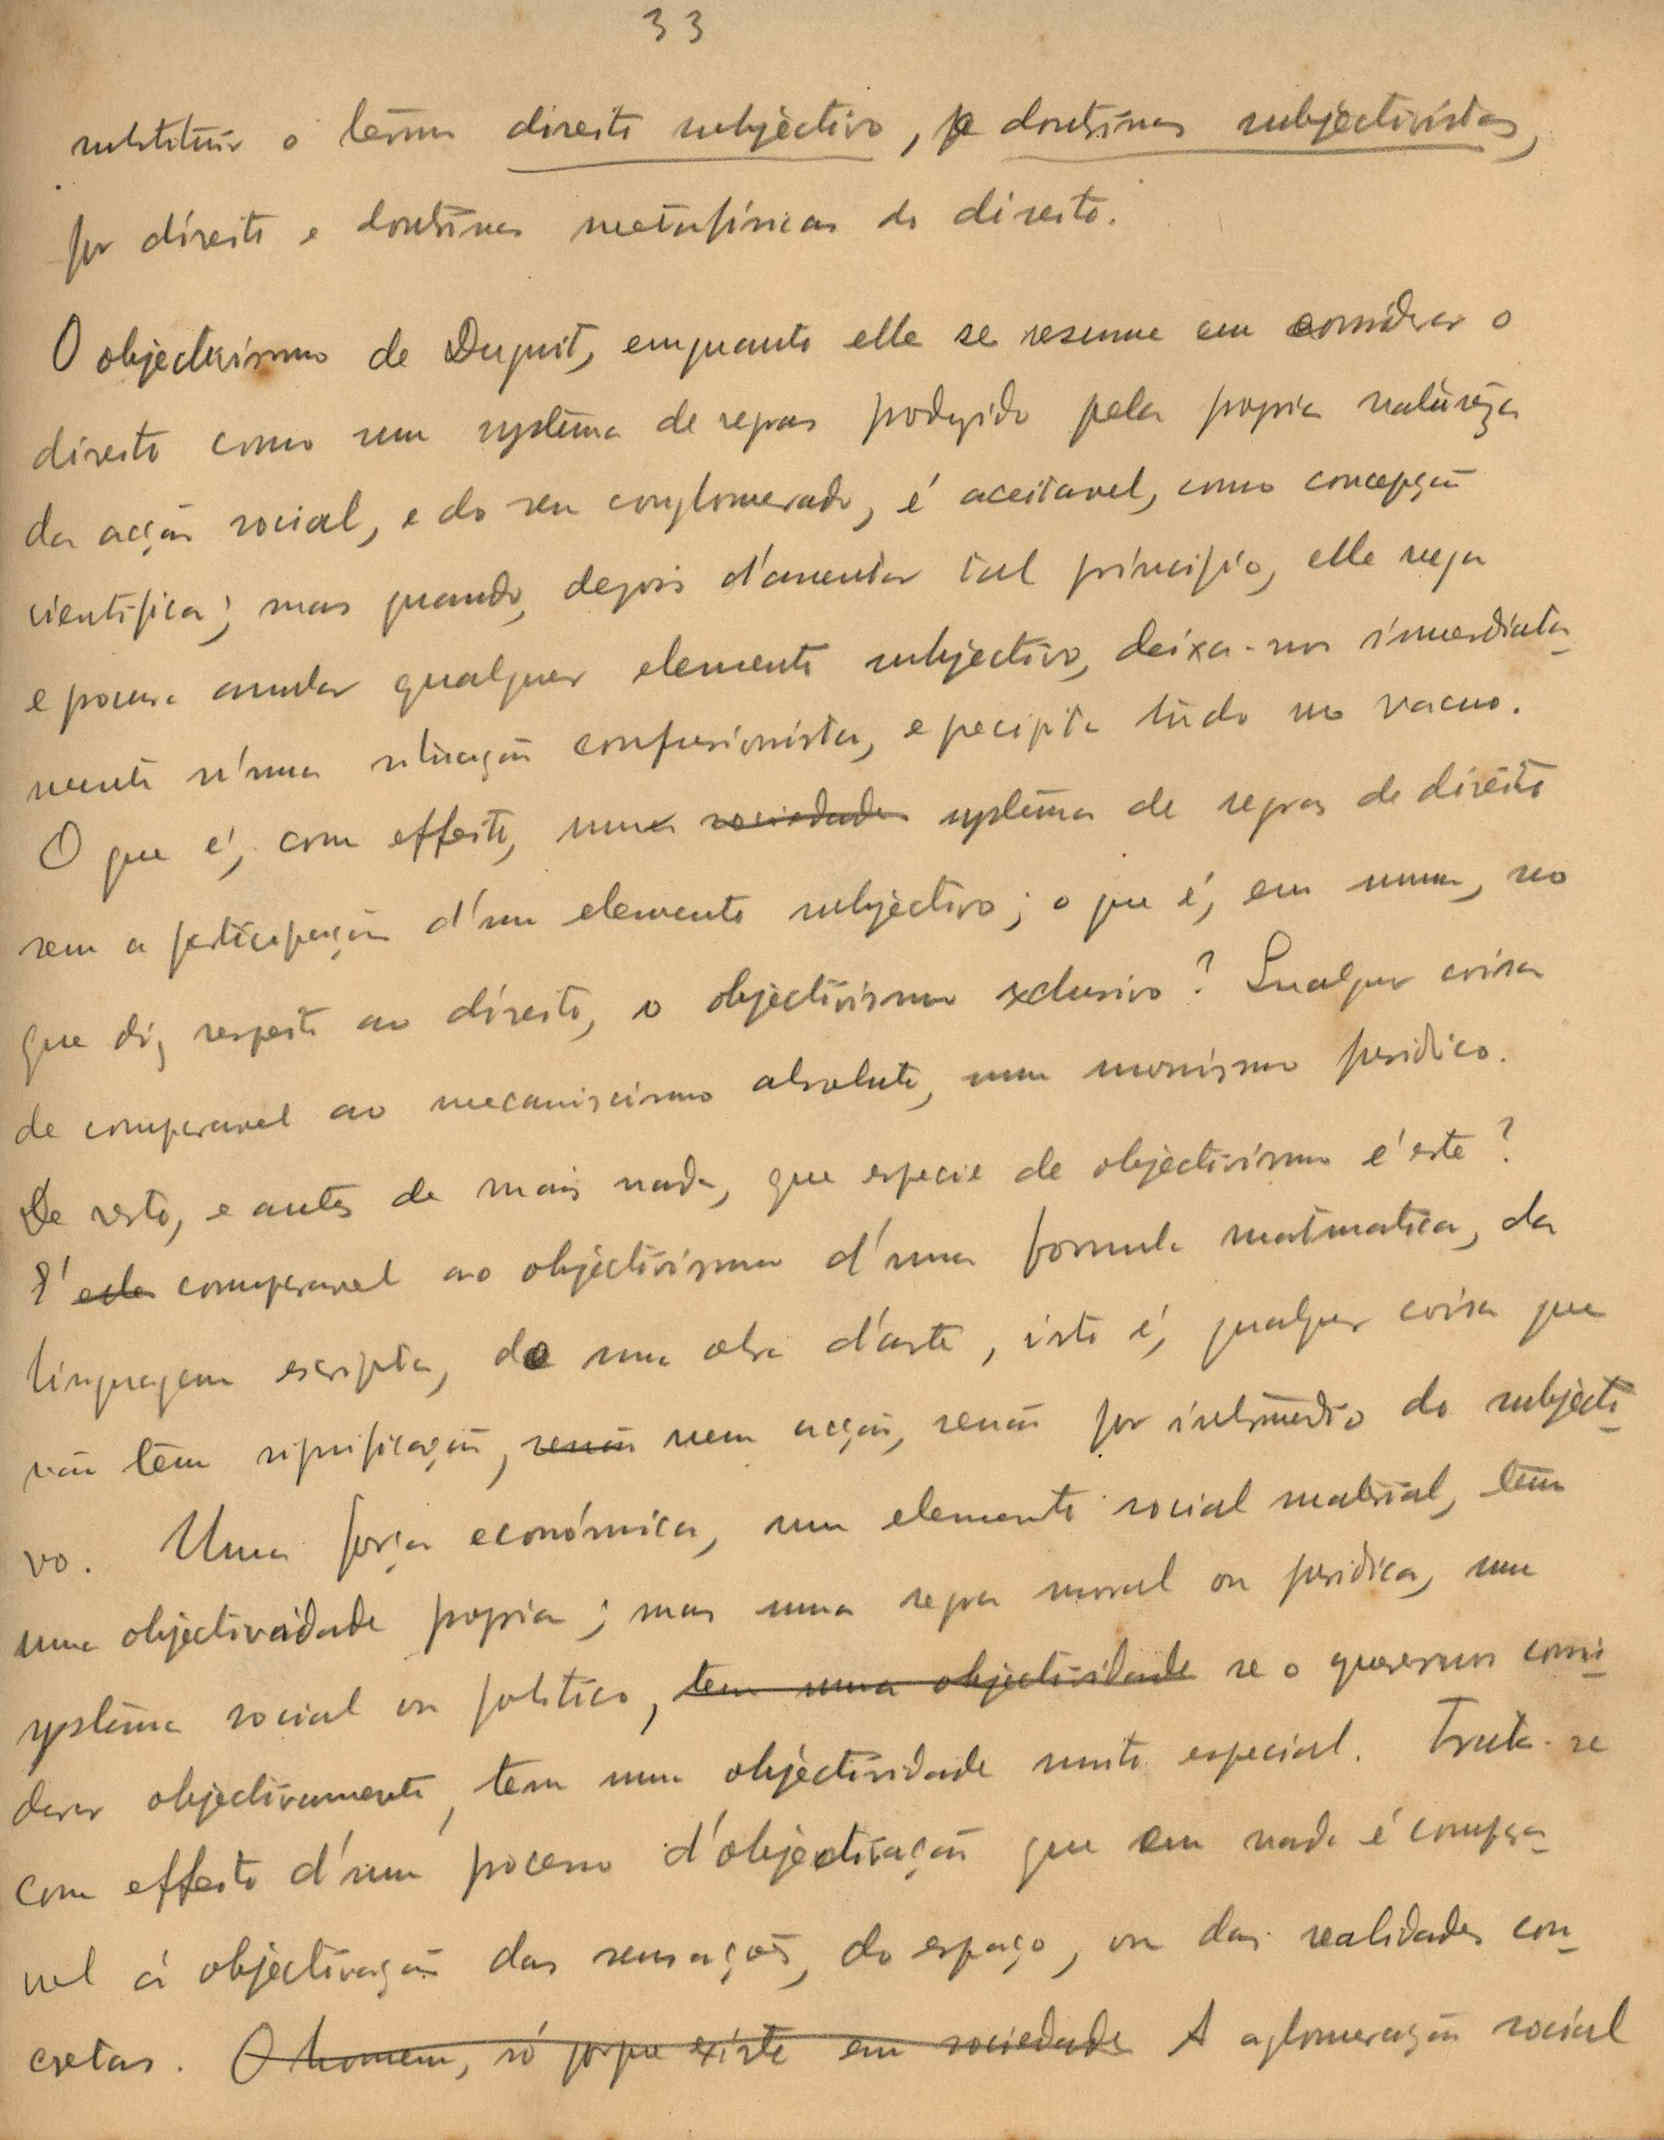 33
substituir o termo direito subjectivo, e doutrinas subjectivistas,
por direito e doutrinas metafísicas do direito.
O objectivismo de Duguit, emquanto elle se resume em considerar o
direito como um systema de regras produzido pela propria natureza
da acção social, e do seu conglomerado, é aceitavel, como concepção
cientifica; mas quando, depois d'assentar tal princípio, elle nega
e procura annular qualquer elemento subjectivo, deixa-nos immediata-
mente n'uma situação confusionista, e precipita tudo no vacuo.
O que é, com effeito, um sociedade systema de regras de direito
sem a participação d'um elemento subjectivo; o que é, em summa, no
que diz respeito ao direito, o objectivismo exclusivo? Qualquer coisa
de comparavel ao mecanicismo absoluto, um monismo juridico.
De resto, e antes de mais nada, que especie de objectivismo é este?
É este comparavel ao objectivismo d'uma formula matematica, da
linguagem escripta, de uma obra d'arte, isto é, qualquer coisa que
não tem significação, senão nem acção, senão por intermedio do subjecti-
vo. Uma força económica, um elemento social material, tem
uma objectividade propria; mas uma regra moral ou juridica, um
systema social ou politico, tem uma objectividade se o queremos consi-
derar objectivamente, tem uma objectividade muito especial. Trata-se
com effeito d'um processo d'objectivação que em nada é compara-
vel á objectivação das sensações, do espaço, ou das realidades con-
cretas. O homem, só porque existe em sociedade A aglomeração social